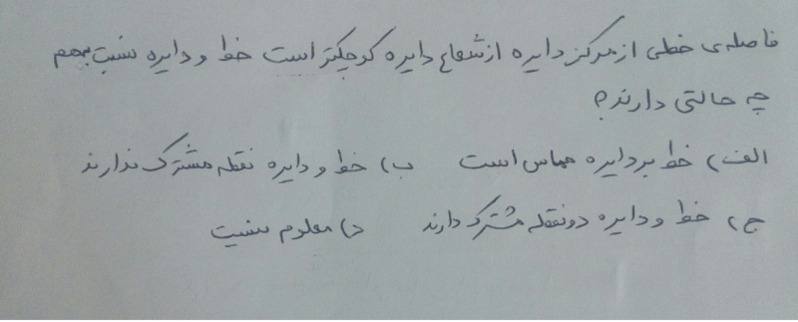 فاصله‌ی خطی از مرکز دایره از شعاع دایره کوچکتر است خط و دایره نسبت بهم
چه حالتی دارند؟
الف) خط بر دایره مماس است ب) خط و دایره نقطه مشترک ندارند
ج) خط و دایره دو نقطه مشترک دارند د) معلوم نیست